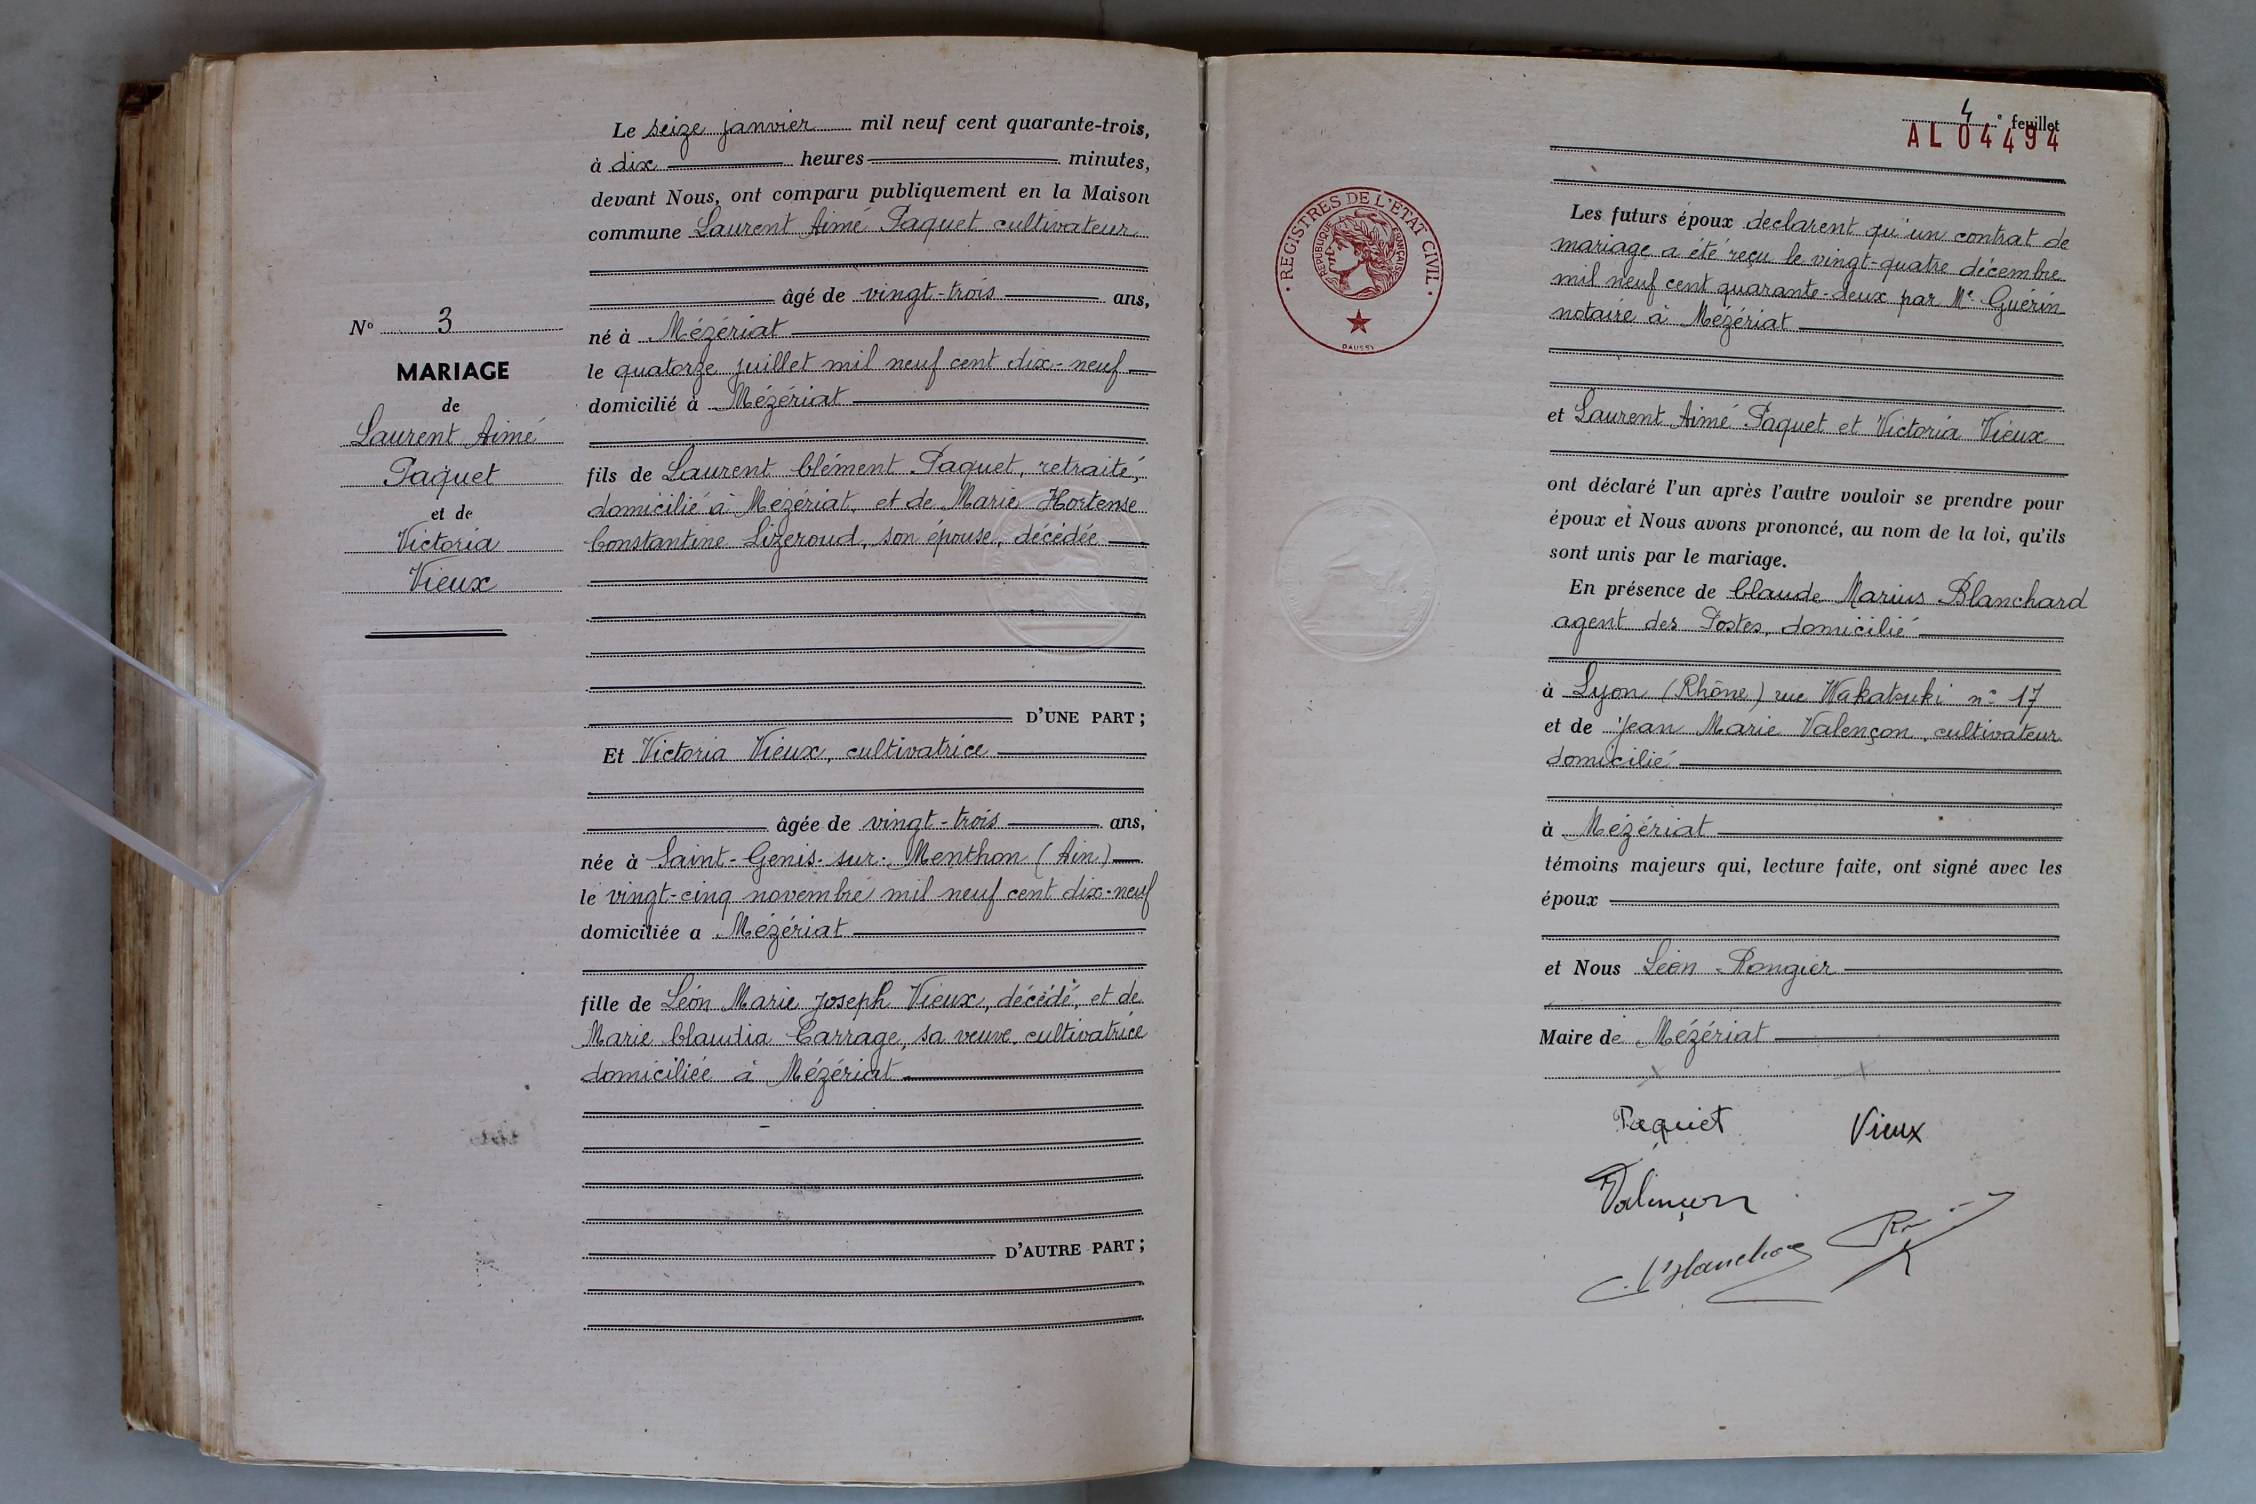 Le seize janvier mil neuf cent quarante-trois,
à dix heures minutes,
devant Nous, ont comparu publiquement en la Maison
commune Laurent Aimé Paquet cultivateur
âgé de vingt-trois ans,
né à Mézériat
le quatorze juillet mil neuf cent dix-neuf
domicilié à Mézériat
fils de Laurent Clément Paquet, retraité,
domicilié à Mézériat, et de Marie Hortense
Constantine Lizeroud, son épouse, décédée
D'UNE PART ;
Et Victoria Vieux, cultivatrice
âgée de vingt-trois ans,
née à Saint-Genis-sur-Menthon (Ain)
le vingt-cinq novembre mil neuf cent dix-neuf
domiciliée à Mézériat
fille de Léon Marie Joseph Vieux, décédé, et de
Marie Claudia Carrage, sa veuve, cultivatrice
domiciliée à Mézériat
D'AUTRE PART ;
N° 3
MARIAGE
de
Laurent Aimé
Paquet
et de
Victoria
Vieux
4e feuillet
AL 04494
REGISTRES DE L'ETAT CIVIL
REPUBLIQUE FRANÇAISE
DAUSSY
Les futurs époux déclarent qu'un contrat de
mariage a été reçu le vingt-quatre décembre
mil neuf cent quarante-deux par Me Guérin
notaire à Mézériat
et Laurent Aimé Paquet et Victoria Vieux
ont déclaré l'un après l'autre vouloir se prendre pour
époux et Nous avons prononcé, au nom de la loi, qu'ils
sont unis par le mariage.
En présence de Claude Marius Blanchard
agent des Postes, domicilié
à Lyon (Rhône) rue Wakatsuki n° 17
et de Jean Marie Valençon, cultivateur
domicilié
à Mézériat
témoins majeurs qui, lecture faite, ont signé avec les
époux
et Nous Léon Rongier
Maire de Mézériat
Paquet Vieux
Valençon
C. Blanchard